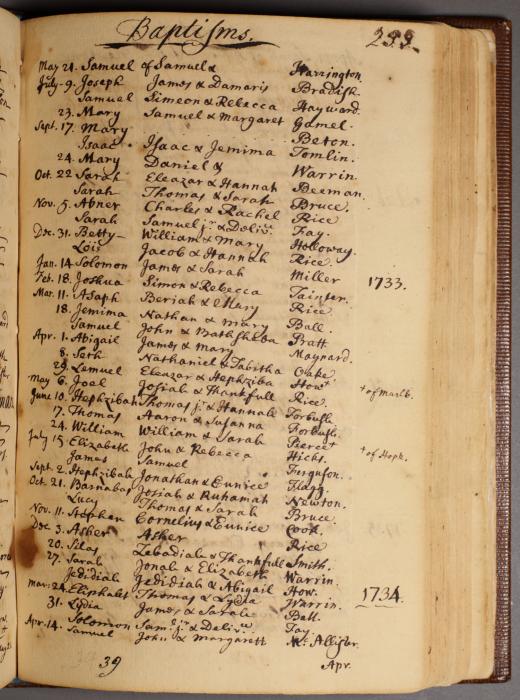 Baptisms. 233.
May 21. Samuel of Samuel & Harrington.
July 9. Joseph James & Damaris Bradish.
Samuel Simeon & Rebecca Hayward.
23. Mary Samuel & Margaret Gamel.
Sept. 17. Mary Beton.
Isaac Isaac & Jemima Tomlin.
24. Mary Daniel & Warrin
Oct. 22 Sarah Eleazar & Hannah Beeman.
Sarah Thomas & Sarah Bruce.
Nov. 5. Abner Charles & Rachel Rice
Sarah Samuel jr. & Deliv. Fay.
Dec. 31. Betty William & Mary Holloway.
Lois Jacob & Hannah Rice.
Jan. 14. Solomon James & Sarah Miller 1733.
Feb. 18. Joshua Simon & Rebecca Tainter.
Mar. 11. Asaph Beriah & Mary Rice.
18. Jemima Nathan & Mary Ball.
Samuel John & Bathsheba Pratt
Apr. 1. Abigail James & Mary Maynard.
8. Seth Nathaniel & Tabitha Oake
29. Lemuel Eleazar & Hephziba How+ + of Marlb.
May 6. Joel Josiah & Thankfull Rice.
June 10. Hephzibah Thomas jr. & Hannah Forbush.
17. Thomas Aaron & Susanna Forbush.
24. William William & Sarah Pierce+ + of Hopk.
July 15 Elizabeth John & Rebecca Hicks.
James Samuel Ferguson.
Sept. 2. Hephzibah Jonathan & Eunice Flagg.
Oct. 21. Barnabas Josiah & Ruhamah Newton.
Lucy Thomas & Sarah Bruce.
Nov. 11. Stephen Cornelius & Eunice Cook.
Dec 3. Asher Asher Rice
20. Silas Zebadiah & Thankfull Smith.
27. Sarah Jonah & Elizabeth Warrin.
Jedidiah Jedidiah & Abigail How.
Mar. 24. Eliphalet Thomas & Lydia Warrin. 1734.
31. Lydia James & Sarah Ball.
Solomon Sam. jr. & Deliv. Fay
Apr. 14. Samuel John & Margarett McAllister.
39 Apr.